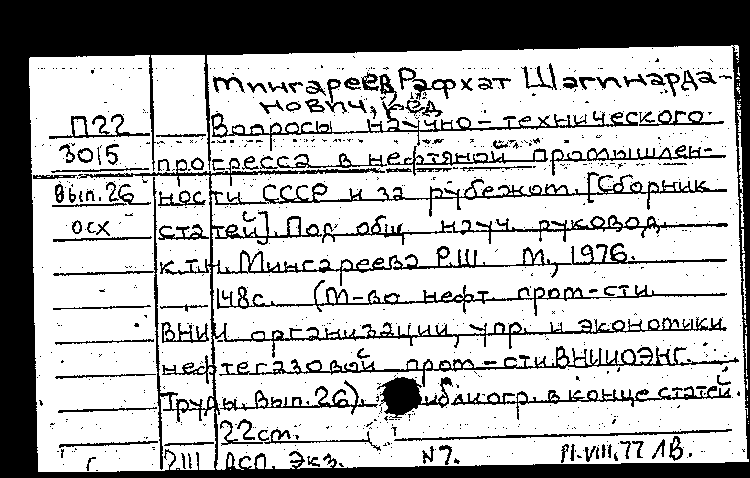 Мингареев Рафхат Шагинарда-
нович, ред
П22 Вопросы научно-технического
3015 прогресса в нефтяной промышлен-
Вып.26 ности СССР и за рубежом. [Сборник
осх статей]. Под общ. науч. руковод.
к.т.н. Мингареева Р.Ш. М., 1976.
148с. (М-во нефт. пром-сти.
ВНИИ организации, упр. и экономики
нефтегазовой пром-сти. ВНИИОЭНГ.
Труды. Вып.26). Библиогр. в конце статей.
22см.
Асп. экз. N7.